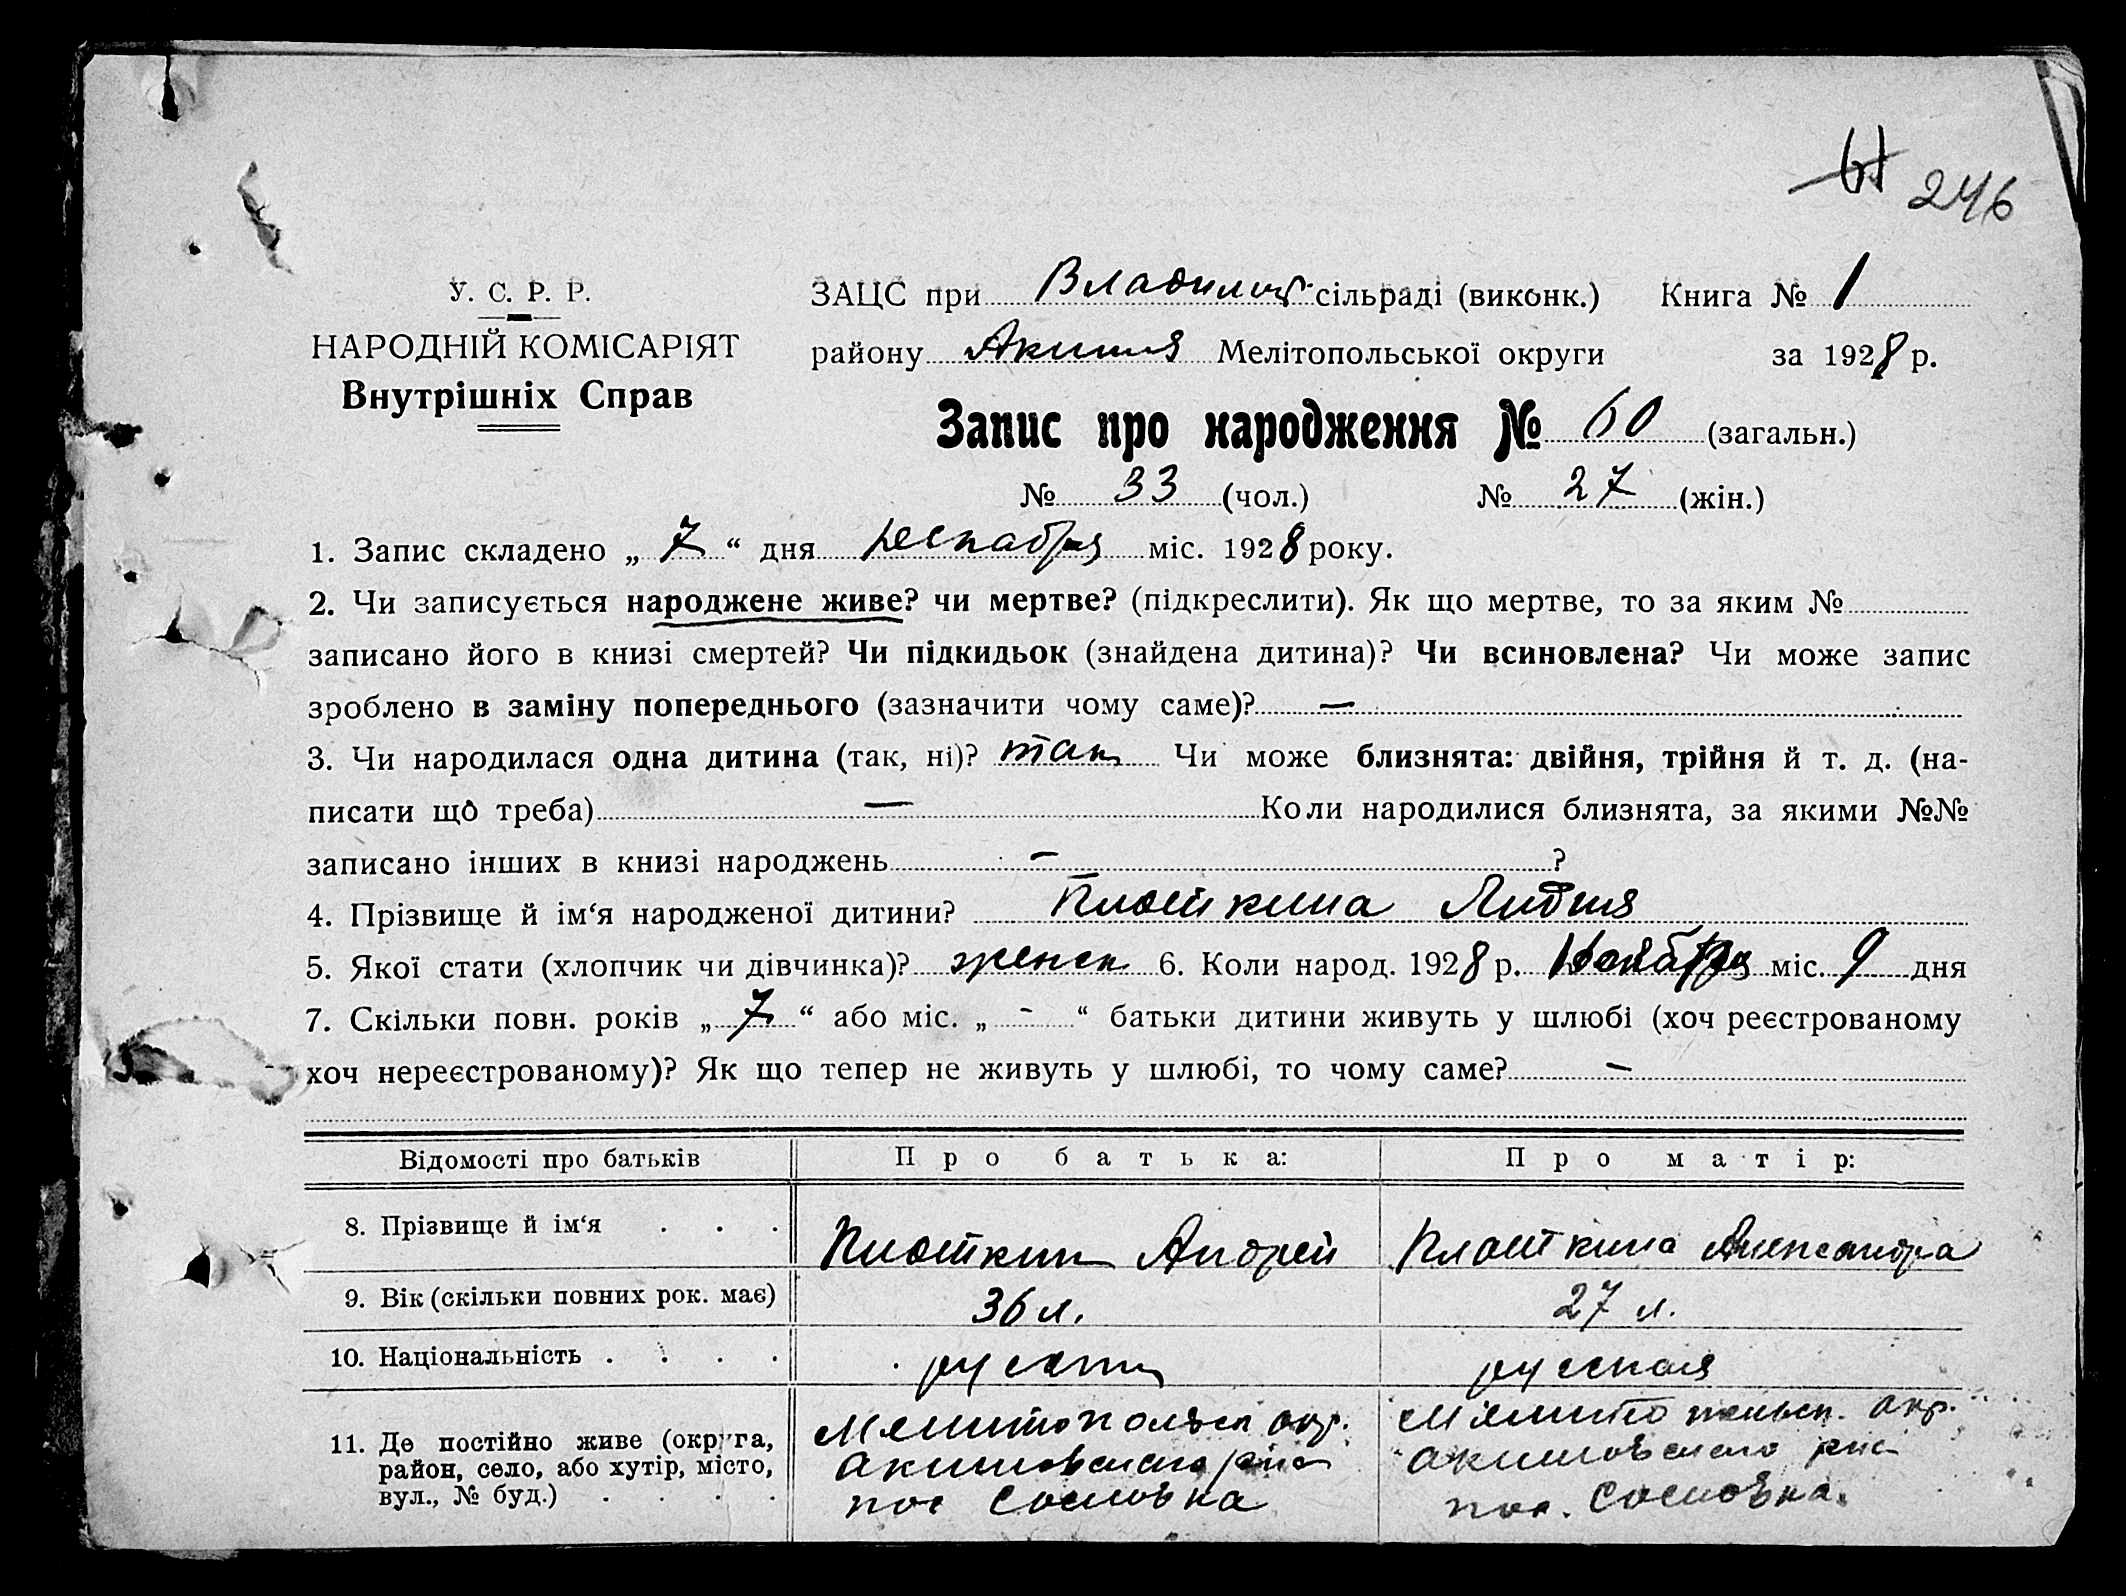 246
У. С. Р. Р.
НАРОДНІЙ КОМІСАРІЯТ
Внутрішніх Справ
ЗАЦС при сільраді (виконк.) Книга № 1
району Аким Мелітопольської округи за 1928 р.
Запис про народження № 60 (загальн.)
№ 33 (чол.) № 27 (жін.)
1. Запис складено „ 7 “ дня декабря міс. 1928 року.
2. Чи записується народжене живе? чи мертве? (підкреслити). Як що мертве, то за яким №
записано його в книзі смертей? Чи підкидьок (знайдена дитина)? Чи всиновлена? Чи може запис
зроблено в заміну попереднього (зазначити чому саме)? —
3. Чи народилася одна дитина (так, ні)? так Чи може близнята: двійня, трійня й т. д. (на-
писати що треба) — Коли народилися близнята, за якими №№
записано інших в книзі народжень — ?
4. Прізвище й ім‘я народженої дитини? Плоткина Лидия
5. Якої стати (хлопчик чи дівчинка)? женск 6. Коли народ. 1928 р. Ноября міс. 9 дня
7. Скільки повн. років „ 7 “ або міс. „ - “ батьки дитини живуть у шлюбі (хоч реєстрованому
хоч нереєстрованому)? Як що тепер не живуть у шлюбі, то чому саме? —
Відомості про батьків Про батька: Про матір:
8. Прізвище й ім‘я . . . Плоткин Андрей Плоткина Александра
9. Вік (скільки повних рок. має) 36 л. 27 л.
10. Національність . . . . русский русская
11. Де постійно живе (округа, Мелитопольск окр. Мелитопольск. окр.
район, село, або хутір, місто, Акимовского рна Акимовского рна
вул., № буд.) . . . . пос Сосновка пос. Сосновка.